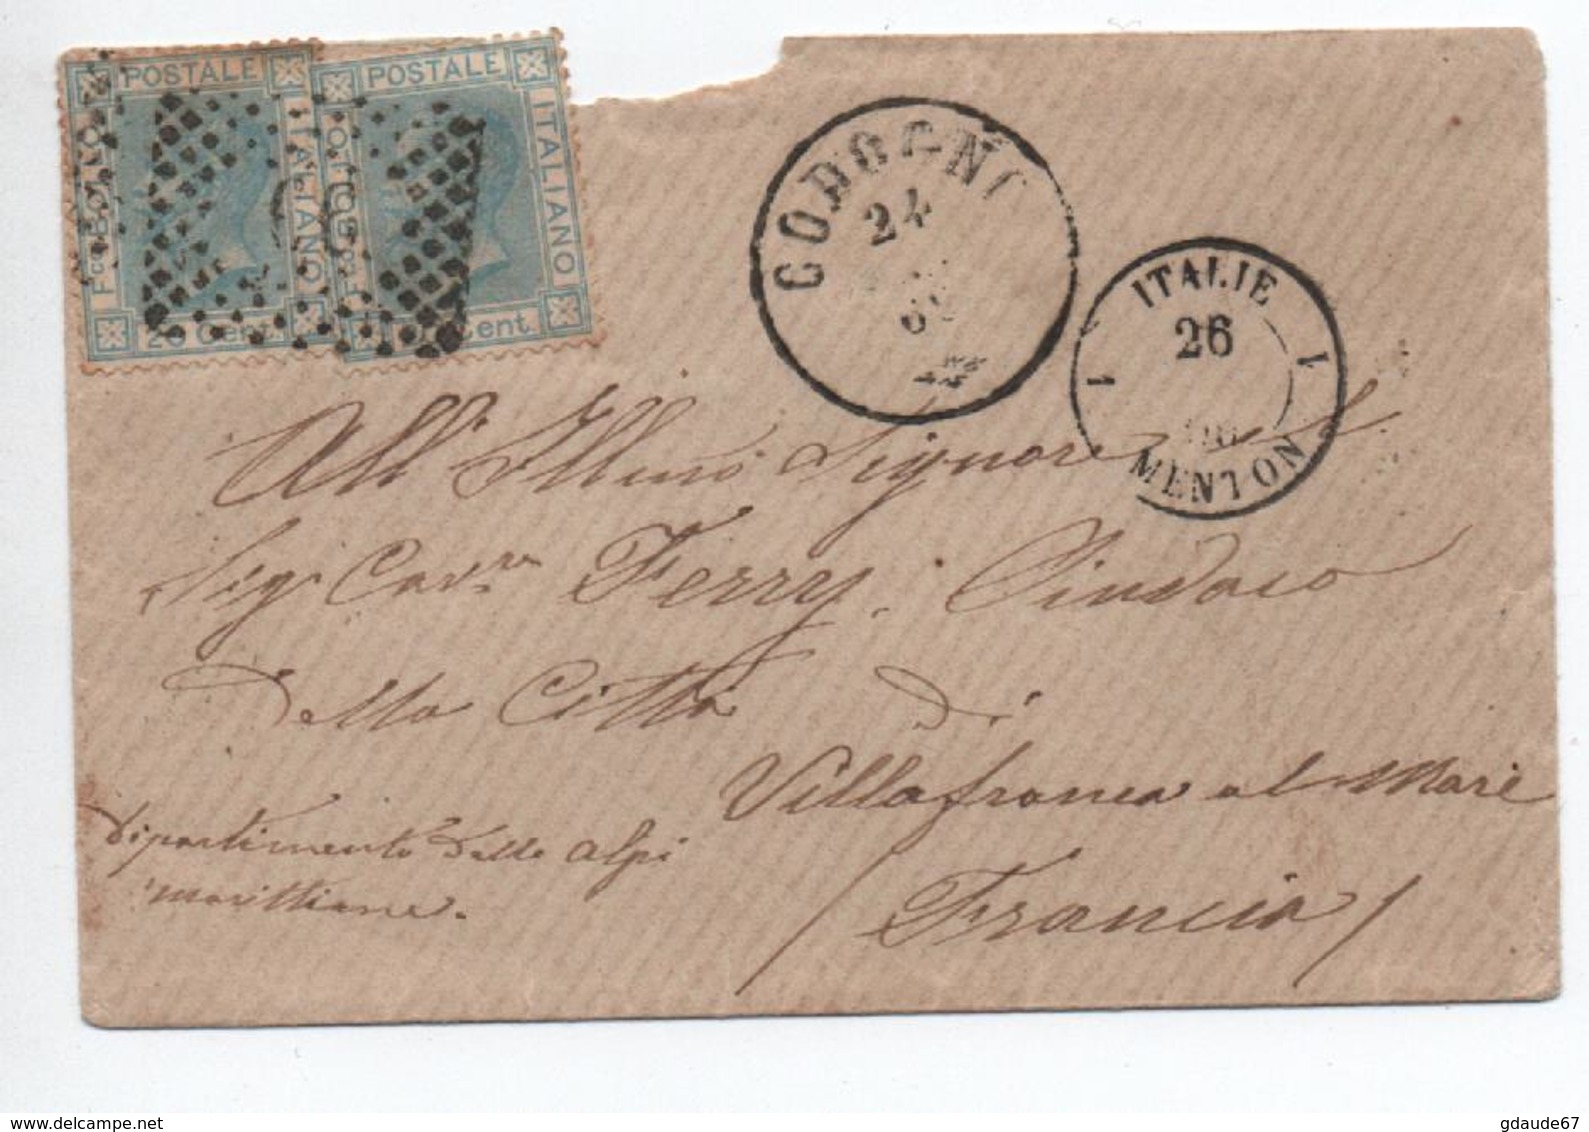 POSTALE
Fco BOLLO
ITALIANO
20 Cent.
POSTALE
BOLLO
ITALIANO
Cent.
CODOGNO
24
ITALIE
26
1 1
MENTON
All' Illmo Signore
Sig. Cavre Ferry. Sindaco
della Città di
Villafranca al Mare
dipartimento delle alpi
marittime.
/Francia/
www.delcampe.net
gdaude67